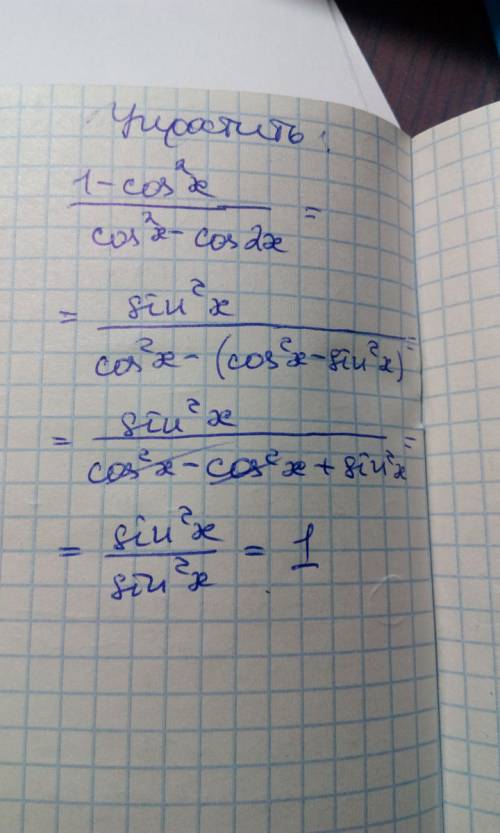 Упростить:
1-cos²x / cos²x - cos2x =
= sin²x / cos²x - (cos²x - sin²x) =
= sin²x / cos²x - cos²x + sin²x =
= sin²x / sin²x = 1